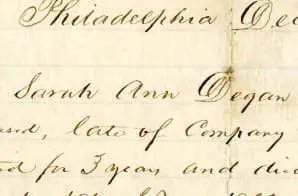 Philadelphia Dec
Sarah Ann Degan
used, late of Company
ed for 3 years and died